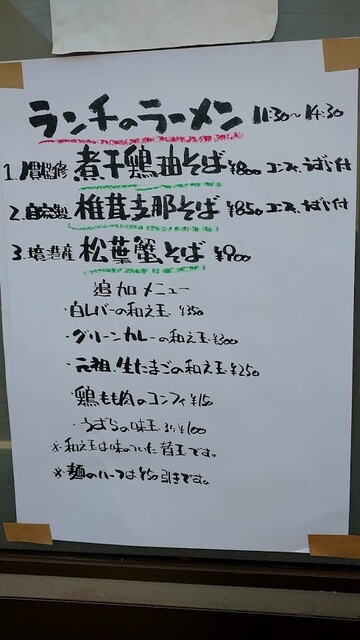 ランチのラーメン 11:30～14:30
1. 煮干鶏油そば ¥800 コーンフ、うずら付
2. 自家製 椎茸支那そば ¥850 コーンフ、うずら付
3. 境港産 松葉蟹そば ¥900
追加メニュー
・白レバーの和え玉 ¥350
・グリーンカレーの和え玉 ¥300
・元祖、生たまごの和え玉 ¥250
・鶏もも肉のコンフィ ¥150
・うずらの味玉 3ケ ¥100
※和え玉は味のついた替玉です。
※麺のハーフは¥50引きです。